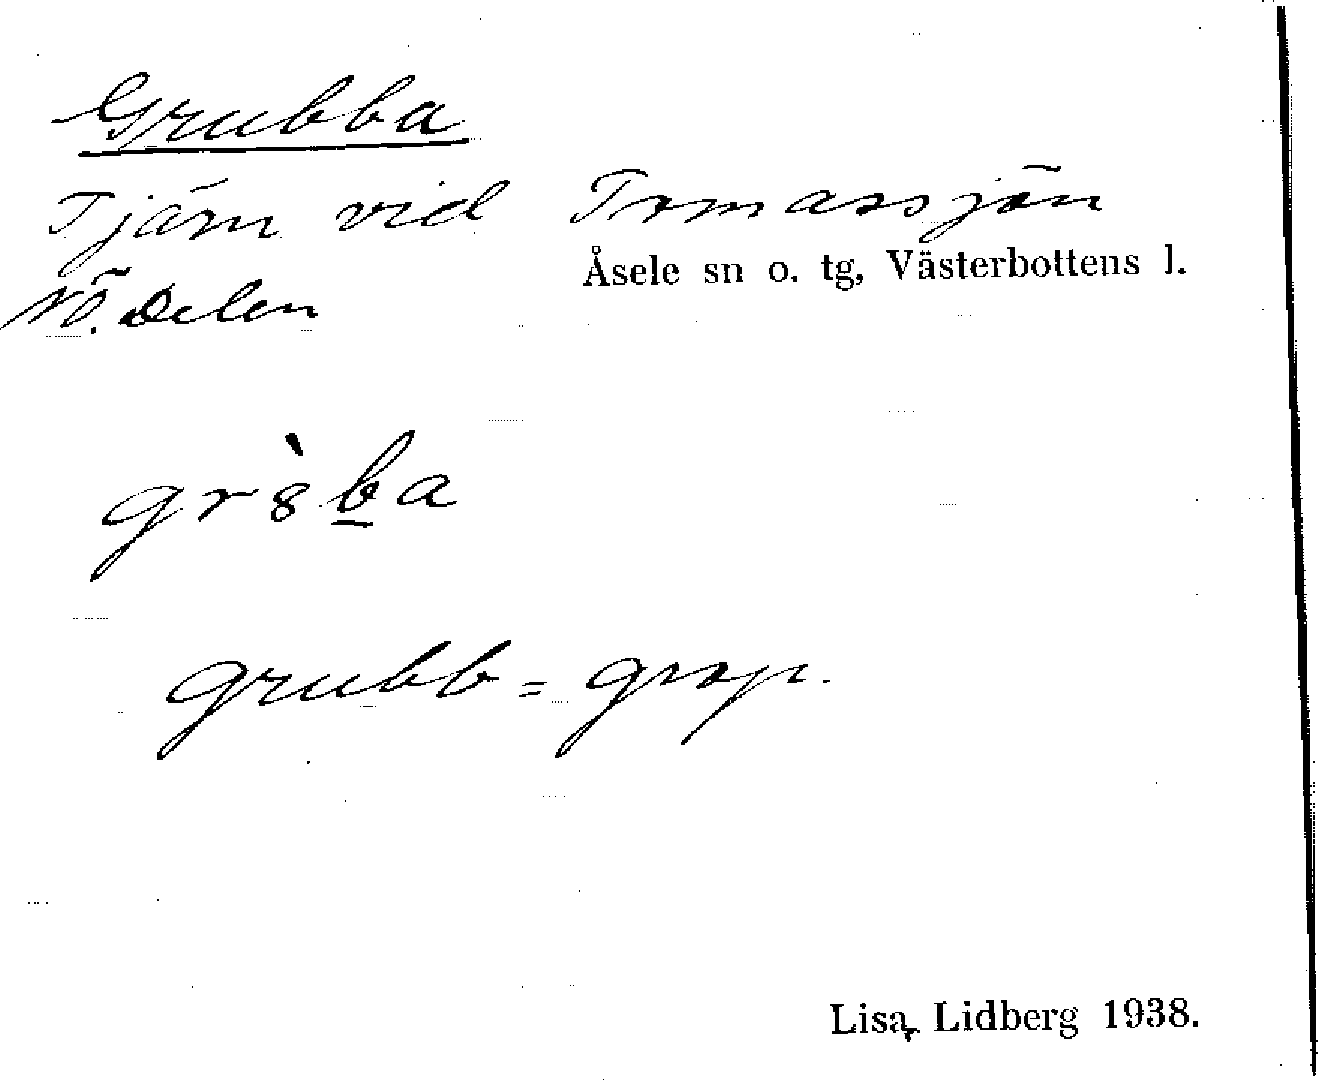 Grubba
Tjärn vid Tomassjön
Åsele sn o. tg, Västerbottens l.
NÖ. Delen
gr8̀b̲a
grubb = grop.
Lisa Lidberg 1938.